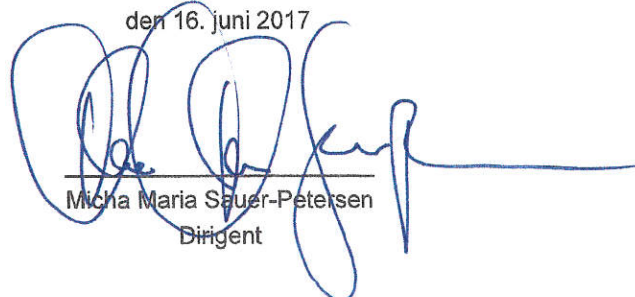 den 16. juni 2017
Micha Maria Sauer-Petersen
Dirigent